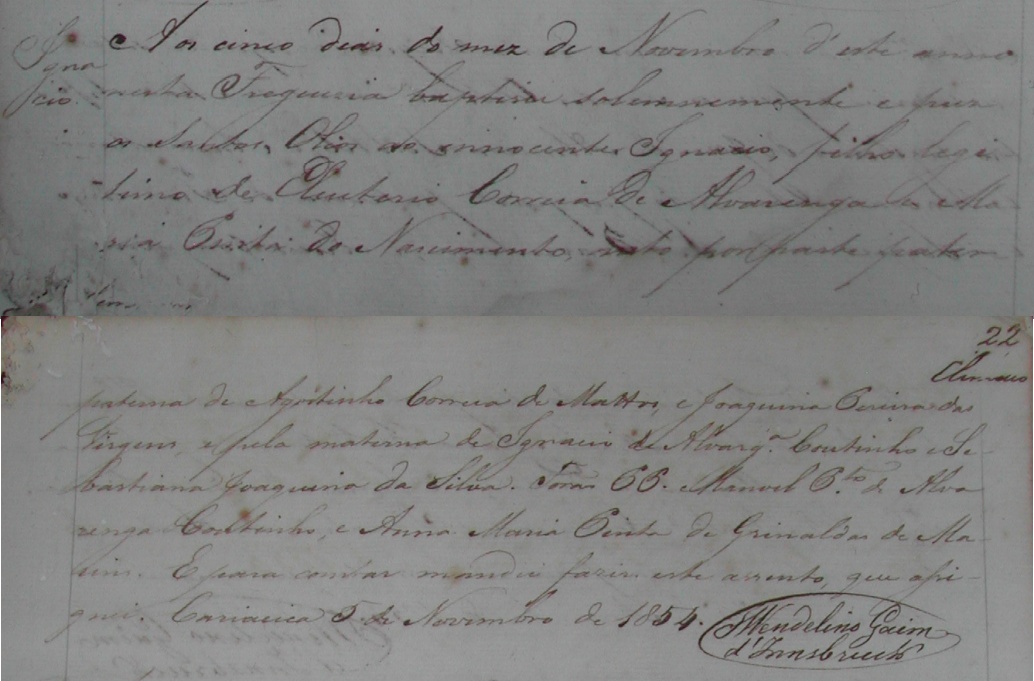 Igna
cio.
Aos cinco dias do mez de Novembro d'este anno
nesta Freguezia baptizei solemnemente e puz
os Santos Olios ao innocente Ignacio, filho legi-
timo de Eluterio Correia de Alvarenga e Ma-
ria Penha do Nascimento, neto por parte pater
22
paterna de Agostinho Correia de Mattos, e Joaquina Pereira das
Virgens, e pela materna de Ignacio de Alvarg.ª Coutinho e Se-
bastiana Joaquina da Silva. Forão PP. Manoel P.to de Alva
renga Coutinho, e Anna Maria Penta de Grinaldas de Ma-
tins. E para constar mandei fazer este assento, que assi-
gnei. Cariacica 5 de Novembro de 1854.
Wendelino Gaim
d'Innsbruck